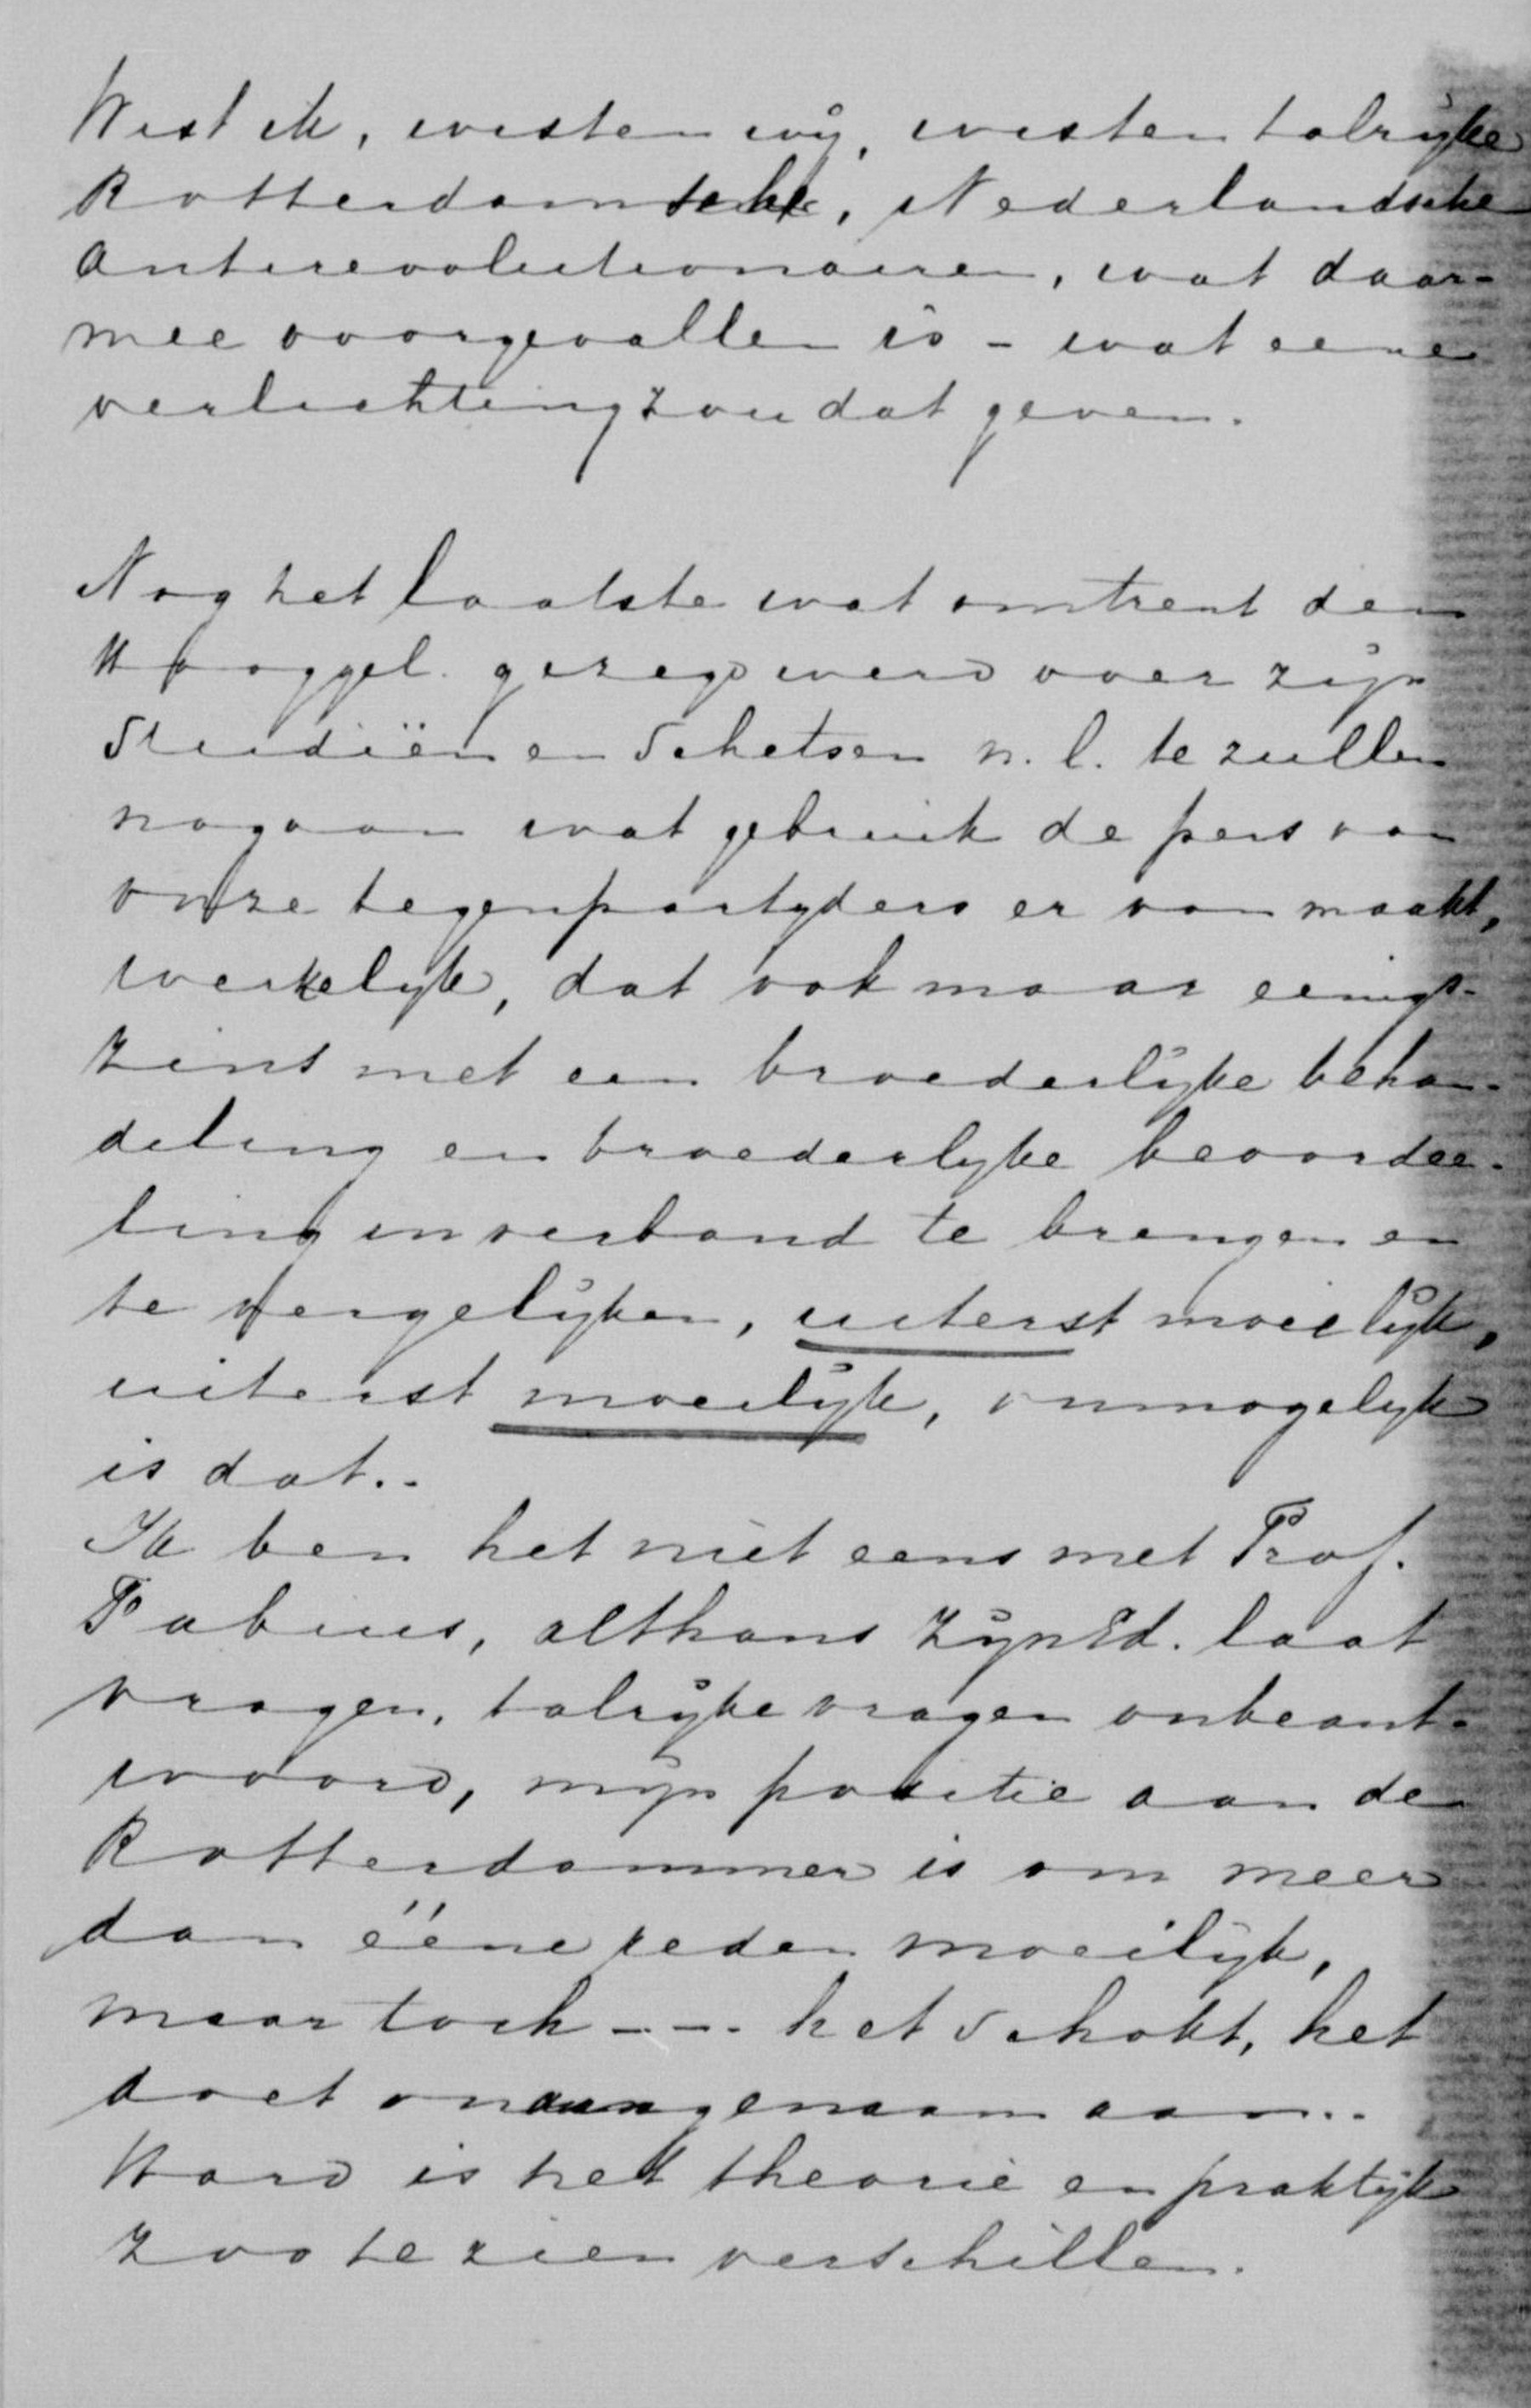 Wist ik, wisten wij, wisten talrijke
Rotterdamsche, Nederlandsche
Antirevolutionairen, wat daar-
mee voorgevallen is - wat eene
verlichting zou dat geven.
Nog het laatste wat omtrent den
Hooggel. gezegd werd over zijn
Studiën en Schetsen n.l. te zullen
nagaan wat gebruik de pers van
onze tegenpartijders er van maakt,
werkelijk, dat ook maar eenigs-
zins met een broederlijke behan-
deling en broederlijke beoordee-
ling in verband te brengen en
te vergelijken, uiterst moeielijk,
uiterst moeilijk, onmogelijk
is dat..
Ik ben het niet eens met Prof.
Fabius, althans ZijnEd. laat
vragen, talrijke vragen onbeant-
woord, mijn positie aan de
Rotterdammer is om meer
dan ééne reden moeilijk,
maar toch --- het schokt, het
doet onaangenaam aan..
Hard is het theorie en praktijk
zoo te zien verschillen.